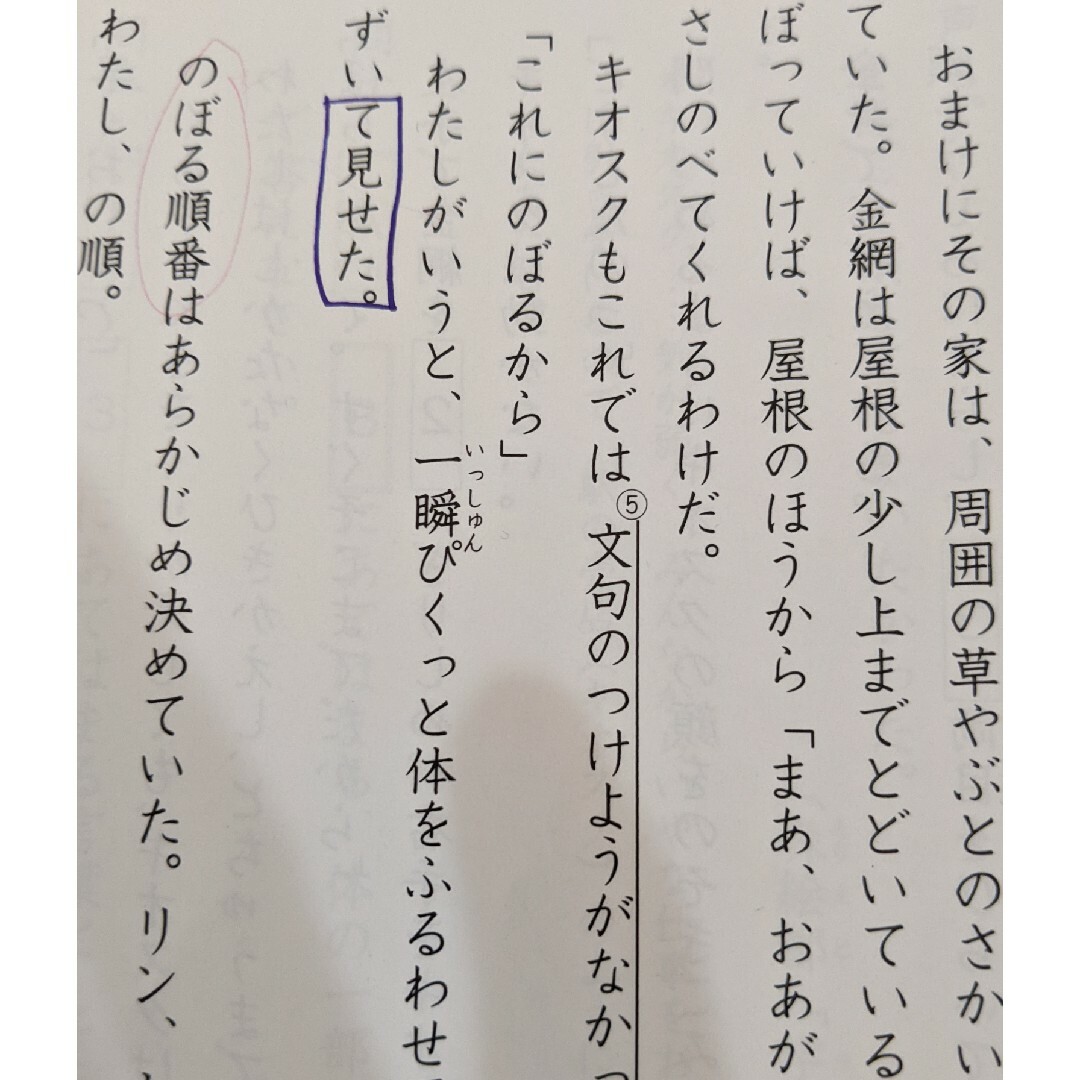 おまけにその家は、周囲の草やぶとのさかい
ていた。金網は屋根の少し上までとどいている
ぼっていけば、屋根のほうから「まあ、おあが
さしのべてくれるわけだ。
キオスクもこれでは⑤文句のつけようがなかっ
「これにのぼるから」
わたしがいうと、一瞬ぴくっと体をふるわせ
いっしゅん
ずいて見せた。
のぼる順番はあらかじめ決めていた。リン、
わたし、の順。